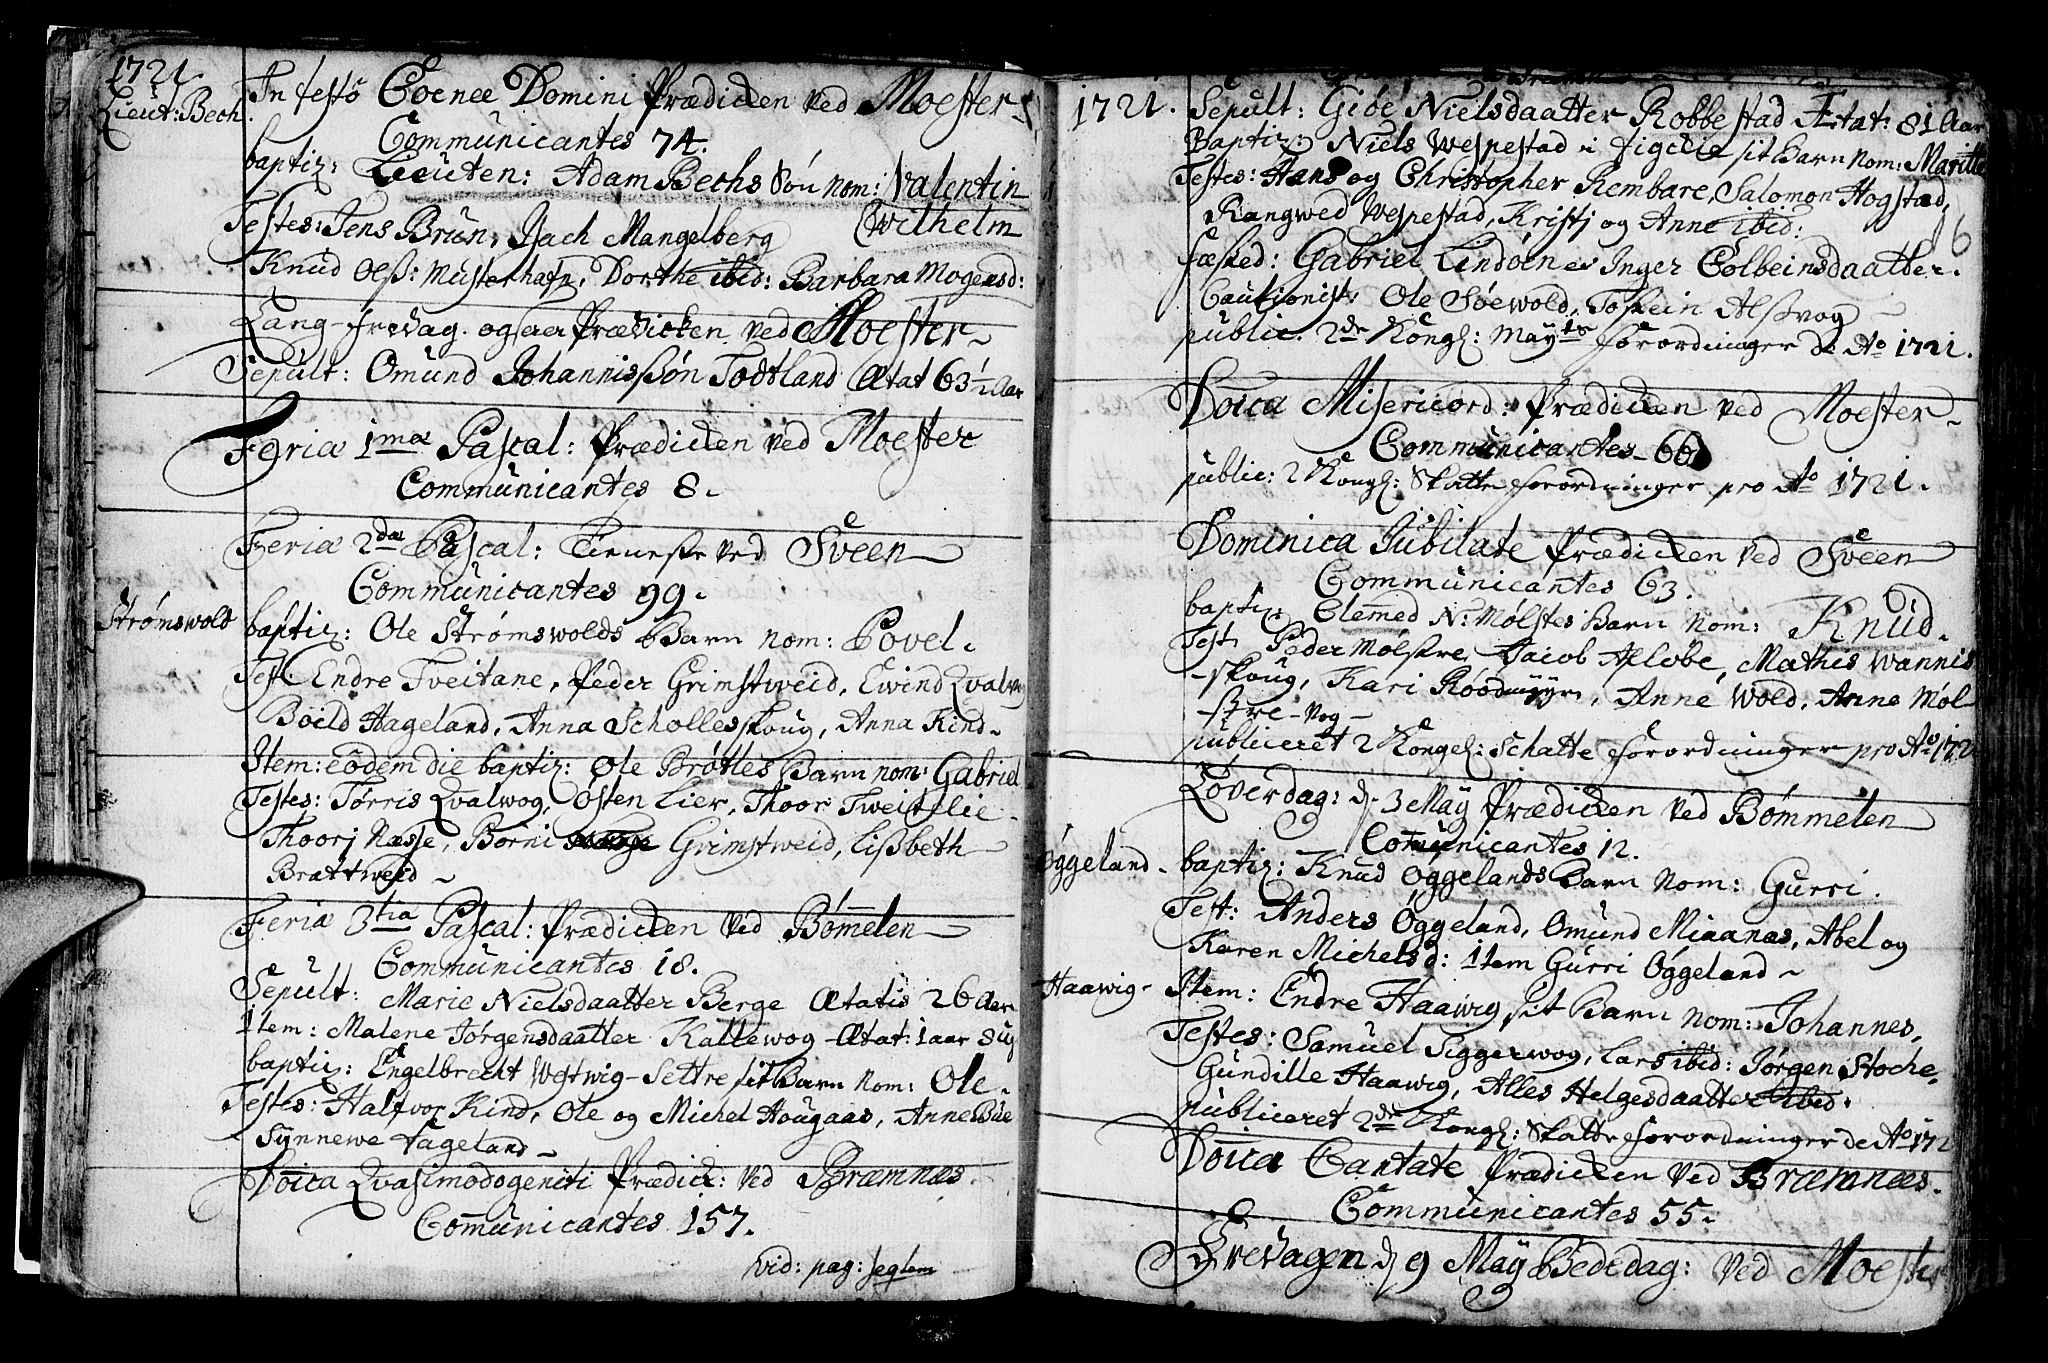 1721.
Lieut: Bech.
In festo Coenæ Domini Prædicken ved Moester
Communicantes 74.
baptiz: Lieuten: Adam Bechs Søn nom: Valentin
Wilhelm
Testes: Jens Brun, Isach Mangelberg
Knud Olß: Musterhafn, Dorthe ibid: Barbara Mogensd:
Lang-fredag. Prædicken ved Moester
Sepult: Omund Johannisßøn Todtland Ætat 63½ Aar
Feria 1mæ Pascal: Prædicken ved Moester
Communicantes 8.
Feria 2dæ Pascal: Tieneste ved Sveen
Communicantes 99.
Strømswold
baptiz: Ole Strømswolds Barn nom: Povel.
Test: Endre Tveitane, Peder Grimstweid, Ewind Qvalwog
Boild Hageland, Anna Scholleskoug, Anna Kind
Item: eodem die baptiz: Ole Brøttes Barn nom: Gabriel
Testes: Tørris Qvalwog, Østen Lier, Thoor Tweitelie
Thoorj Næsse, Borni Grimstweid, Lißbeth
Brattweid
Feria 3tia Pascal: Prædicken ved Bømelen
Communicantes 18.
Sepult: Marie Nielsdaatter Berge Ætatis 26 Aar
Item: Malene Jørgensdaatter Kallewog Ætat: 1 aar 8 ug
baptiz: Engelbrecht Settre sit Barn nom: Ole
Testes: Halfvor Kind, Ole og Michel Hougaas, Anne Bue
Synnewe Fageland
Doica Qvasimodogeniti Prædick: ved Bræmnæs.
Comunicantes 157.
vid: pag: seqtem
1721.
Sepult: Giøe Nielsdaatter Robbestad Ætat: 81 Aar
Baptiz: Niels Wespestad i sit Barn nom: Maritte
Testes: Hans og Christopher Rembare, Salomon Hogstad,
Rangwed Wespestad, Kristj og Anne ibid:
16
fæsted: Gabriel Lindøen Inger Colbeinsdaatter.
Cautionist: Ole Søewold, Tostein Alßvog
public. 2de Kongl: Mayts forordninger de Ao 1721.
Doica Misericord: Prædicken ved Moester
Communicantes 66
public: 2 Kongl: Skatte forordninger pro Ao 1721.
Dominica Jubilate Prædicken ved Sveen
Communicantes 63.
baptiz: Clemed N: Mølstes Barn nom: Knud.
Test: Peder Mølstre, Jacob Apløbe, Mathis Wannis
-skoug, Kari Røodmyyr, Anne Wold, Anne Møl
-stre-vog-
publiceret 2 Kongel: Schatte forordninger pro Ao 172
Løverdag: d. 3 May Prædicken ved Bømmelen
Comunicantes 12.
Øggeland.
baptiz: Knud Øggelands Barn nom: Gurri.
Test: Anders Øggeland, Omund Miaanæs, Abel og
Karen Michelsd: item Gurri Øggeland
Haawig-
Item: Endre Haawig sit Barn nom: Johannes.
Testes: Samuel Siggerwog, Lars ibid: Jørgen Stoche,
Gundille Haawig, Alles Helgesdaatter ibid.
publiceret 2de Kongl: Skatte forordninger de Ao 172
Doica Cantate Prædicken ved Bræmnæs.
Communicantes 55.
Fredagen d. 9 May Bededag: ved Moester